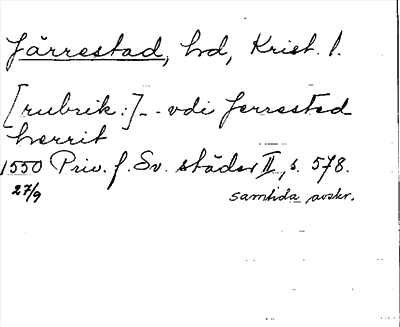 Järrestad, hd, Krist. l.
[rubrik:]-- vdi Jerrested
herrit
1550 Priv. f. Sv. städer II, s. 578.
27/9 samtida avskr.